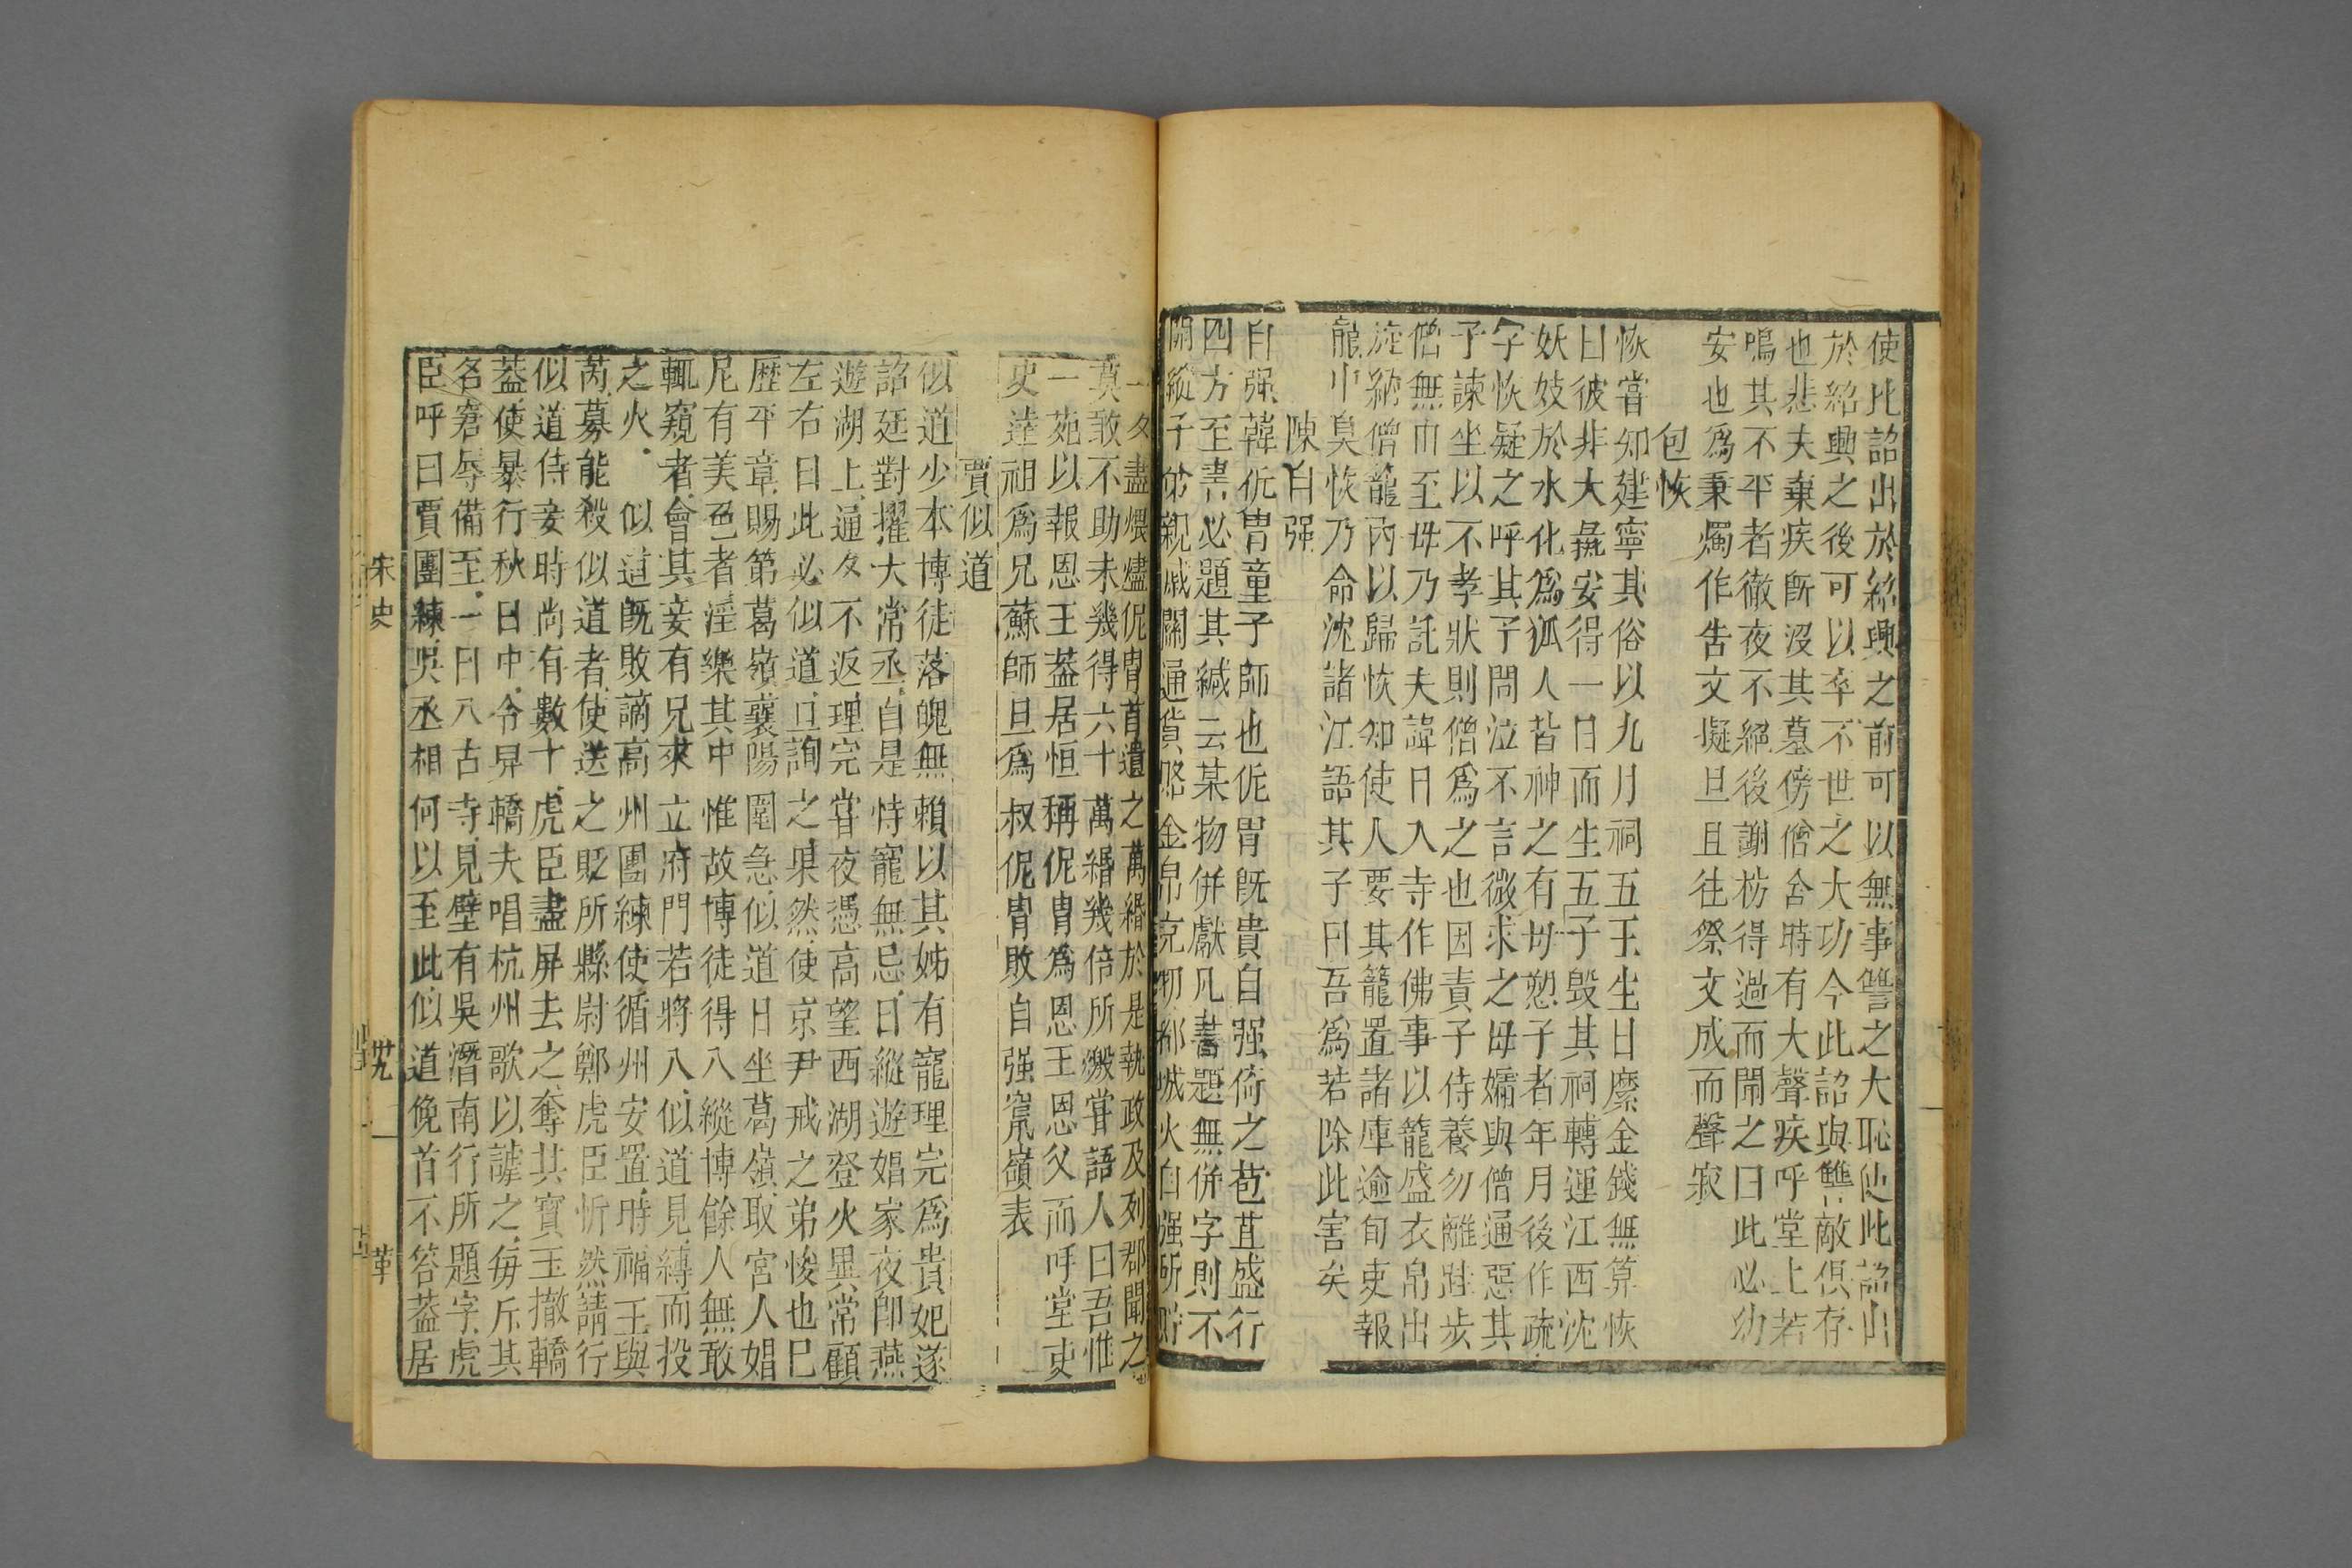 使此詔出於紹興之前可以無事讐之大恥使此詔出
於紹興之後可以卒不世之大功今此詔與讐敵俱存
也悲夫棄疾旣沒其墓傍僧舍時有大聲疾呼堂上若
鳴其不平者徹夜不絕後謝枋得過而聞之曰此必幼
安也爲秉燭作告文擬旦且往祭文成而聲寂
包恢
恢嘗知建寧其俗以九月祠五王生日縻金錢無算恢
曰彼非犬彘安得一日而生五子毁其祠轉運江西沈
妖妓於水化爲狐人皆神之有母愬子者年月後作疏
字恢疑之呼其子問泣不言微求之母孀與僧通惡其
子諫坐以不孝狀則僧爲之也因責子侍養勿離跬步
僧無由至母乃託夫諱日入寺作佛事以籠盛衣帛出
旋納僧籠內以歸恢知使人要其籠置諸庫逾旬吏報
籠中臭恢乃命沈諸江語其子曰吾爲若除此害矣
陳自强
自强韓侂冑童子師也侂冑旣貴自强倚之苞苴盛行
四方至書必題其緘云某物併獻凡書題無併字則不
開縱子弟親戚關通貨賂金帛充牣都城火自强所貯
一夕盡煨燼侂冑首遺之萬緡於是執政及列郡聞之
莫敢不助未幾得六十萬緡幾倍所燬嘗語人曰吾惟
一死以報恩王蓋居恒稱侂冑爲恩王恩父而呼堂吏
史達祖爲兄蘇師旦爲叔侂冑敗自强竄嶺表
賈似道
似道少本博徒落魄無賴以其姊有寵理完爲貴妃遂
詔廷對擢大常丞自是恃寵無忌日縱遊娼家夜卽燕
遊湖上通夕不返理完嘗夜憑高望西湖登火異常顧
左右曰此必似道旦詢之果然使京尹戒之弟悛也巳
歷平章賜第葛嶺襄陽圍急似道日坐葛嶺取宮人娼
尼有美色者淫樂其中惟故博徒得入縱博餘人無敢
輒窺者會其妾有兄來立府門若將入似道見縛而投
之火 似道旣敗謫高州團練使循州安置時福王與
芮募能殺似道者使送之貶所縣尉鄭虎臣忻然請行
似道侍妾時尚有數十虎臣盡屏去之奪其寶玉撤轎
蓋使暴行秋日中令舁轎夫唱杭州歌以謔之每斥其
名窘辱備至一日入古寺見壁有吳潛南行所題字虎
臣呼曰賈團練吳丞相何以至此似道俛首不答蓋居
宋史